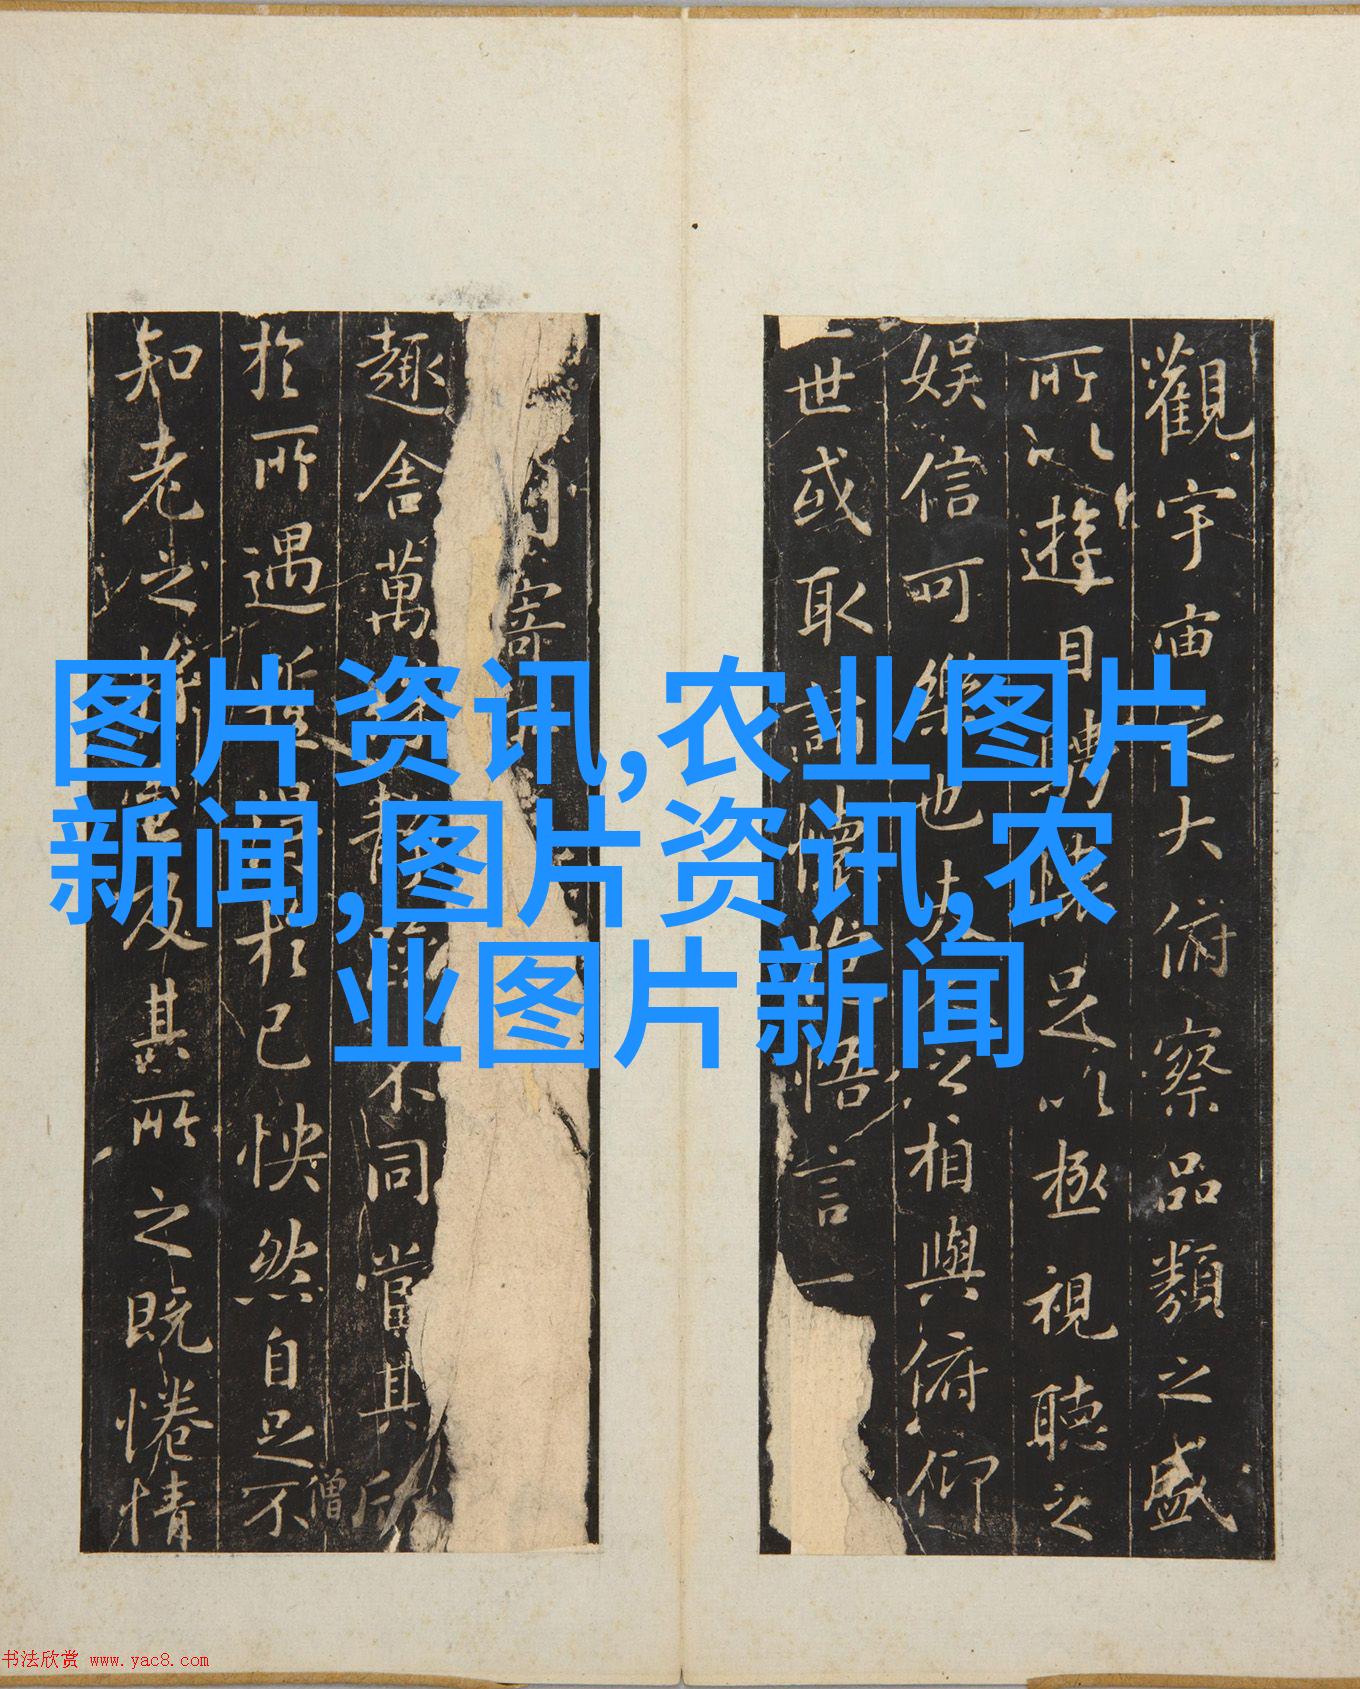 图片资讯,农业图片
新闻,图片资讯,农
业图片新闻
觀宇宙之大俯察品類之盛
所以遊目騁懷足以極視聽之
娛信可樂也夫人之相與俯仰
世或取諸懷抱悟言一
寄
趣舍萬殊靜躁不同當其欣
僧
於所遇蹔得於己怏然自足不
知老之將至及其所之既惓情
书法欣赏 www.yac8.com